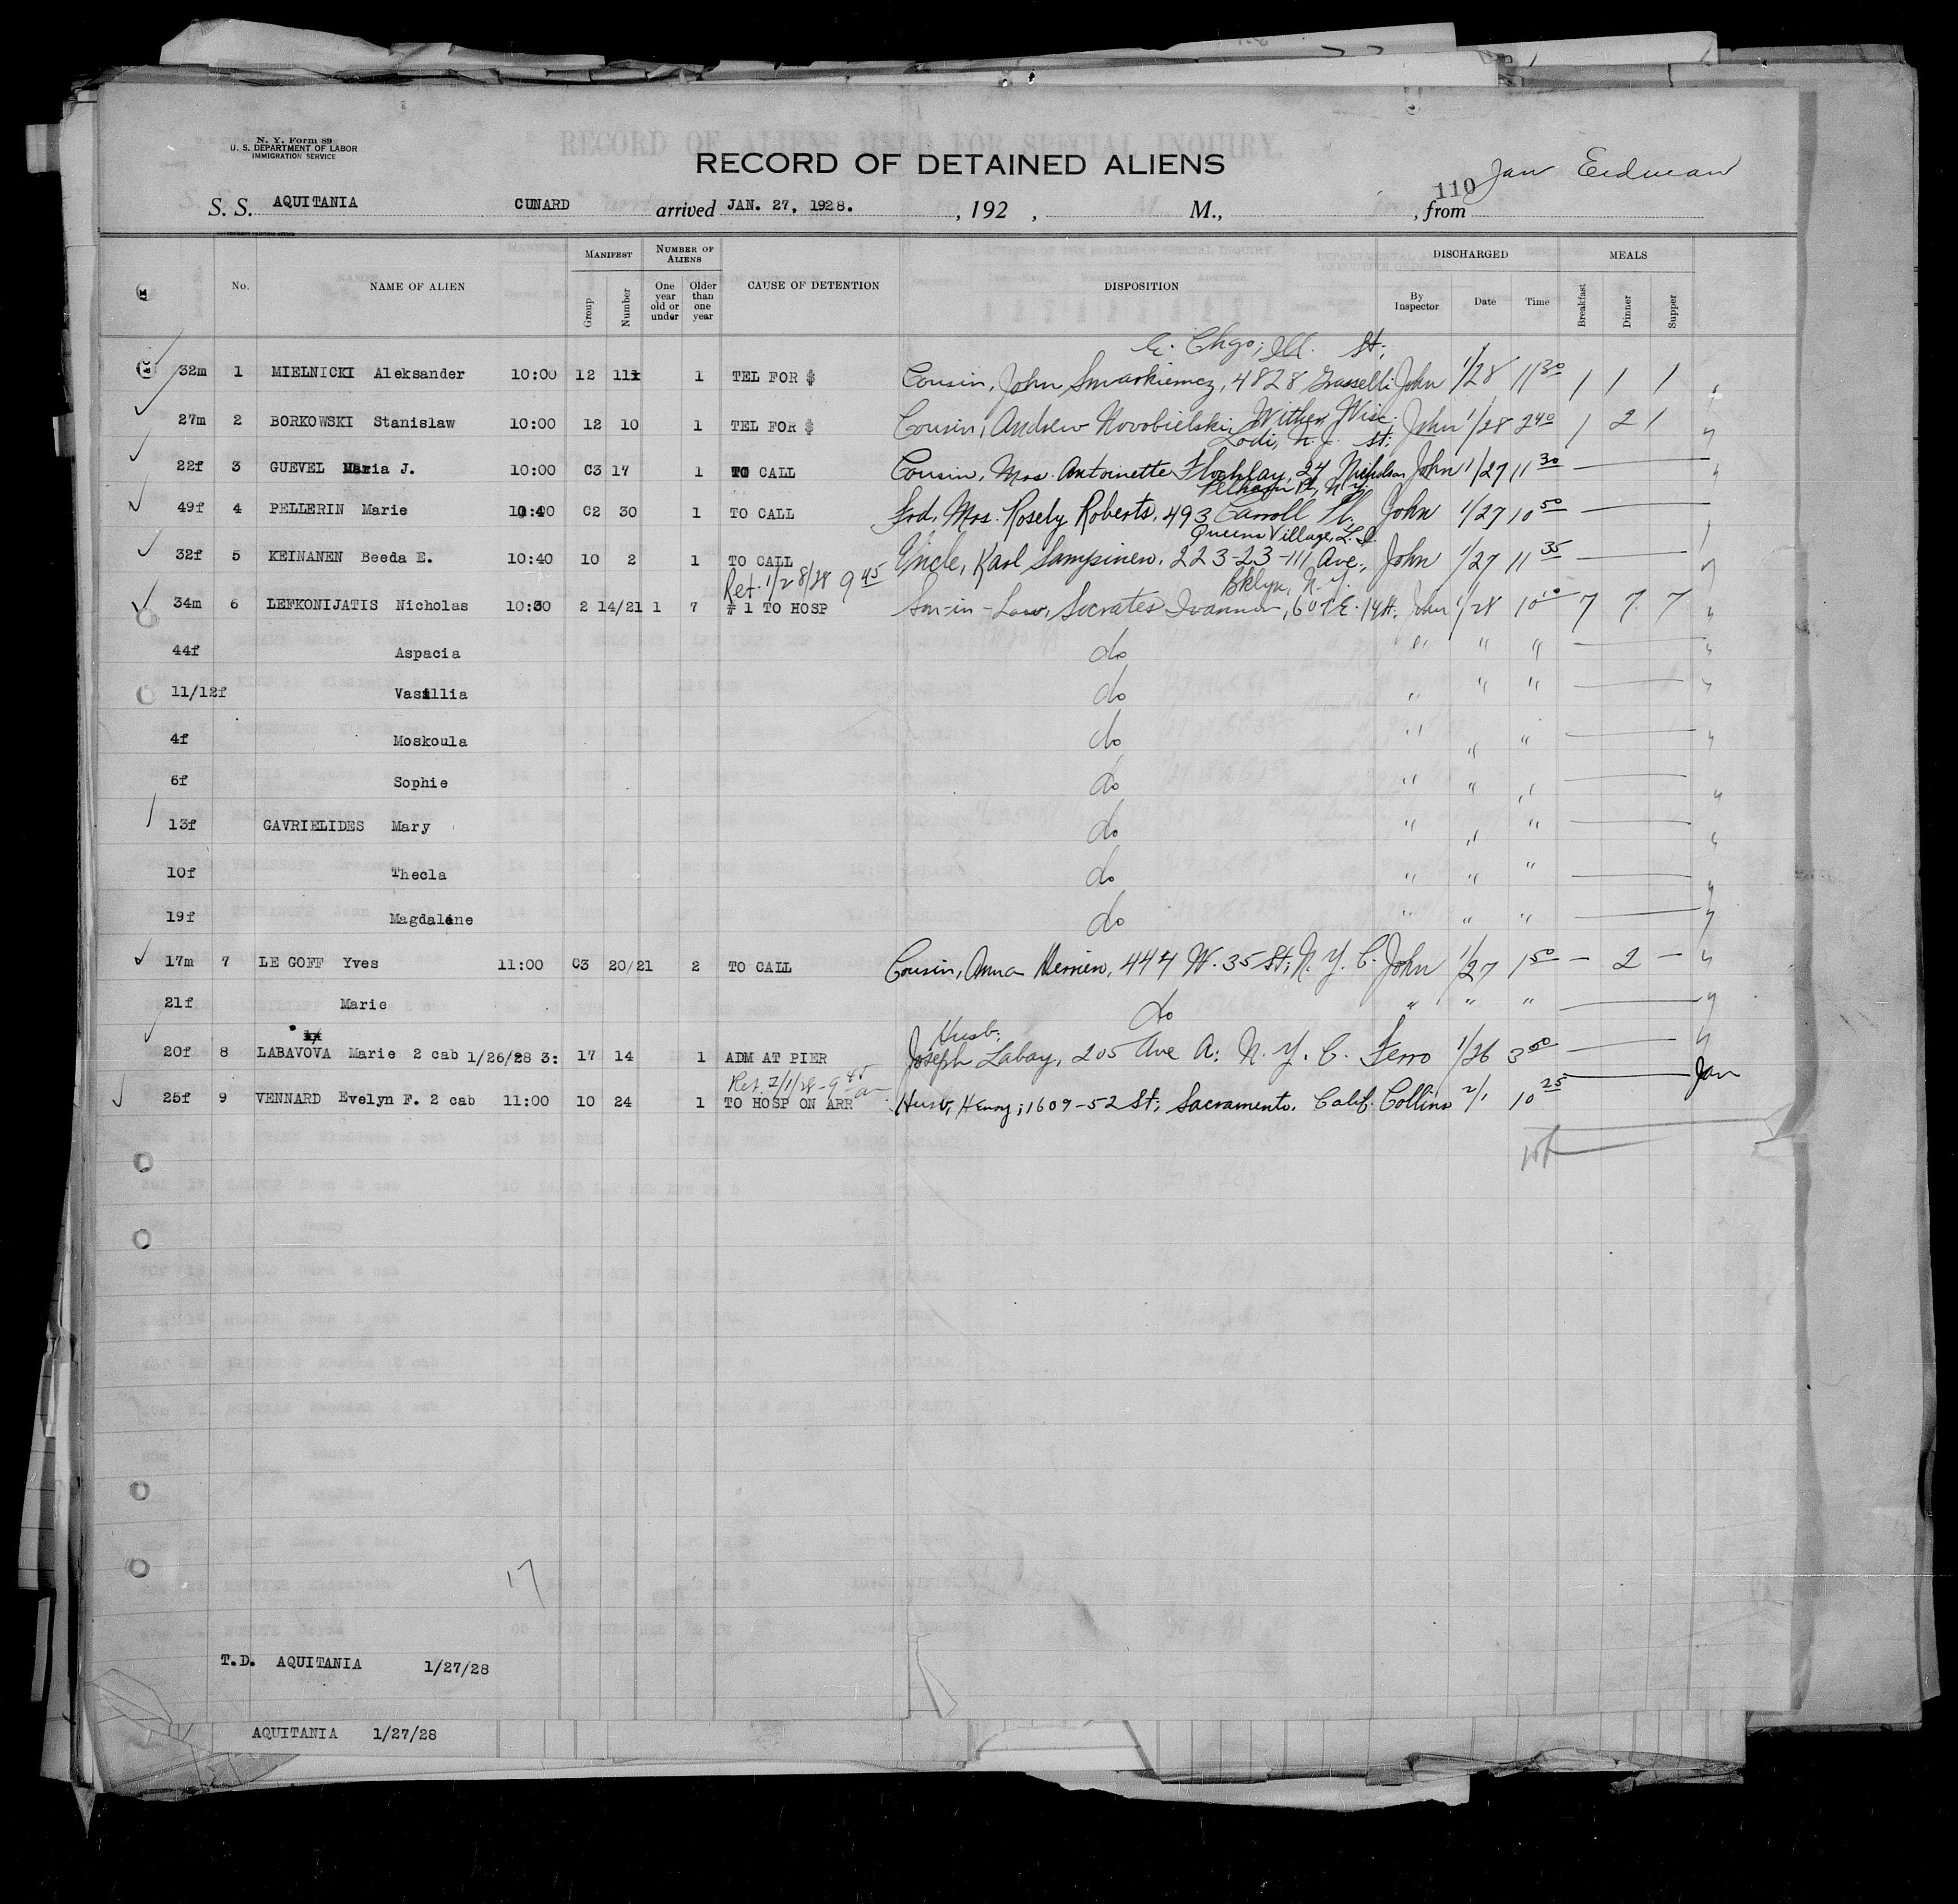 N. Y. Form 89
U. S. DEPARTMENT OF LABOR
IMMIGRATION SERVICE
RECORD OF ALIENS HELD FOR SPECIAL INQUIRY.
RECORD OF DETAINED ALIENS
110 Jan Erdman
S. S. AQUITANIA CUNARD arrived JAN. 27, 1928. , 192 , M., , from
No. NAME OF ALIEN MANIFEST Group Number NUMBER OF ALIENS One year old or under Older than one year CAUSE OF DETENTION DISPOSITION DISCHARGED By Inspector Date Time MEALS Breakfast Dinner Supper
E. Chgo; Ill. St;
32m 1 MIELNICKI Aleksander 10:00 12 11 1 TEL FOR $ Cousin, John Smarkiemcz, 4828 Grasselli John 1/28 11 30 1 1 1
27m 2 BORKOWSKI Stanislaw 10:00 12 10 1 TEL FOR $ Cousin, Andrew Novobielski, Withee, Wisc. John 1/28 2 40 1 2 1
Lodi, N. J. St;
22f 3 GUEVEL Maria J. 10:00 C3 17 1 TO CALL Cousin, Mrs. Antoinette Flochlay, 24 Nicholson John 1/27 11 30
Pelham Pl, N. Y.
49f 4 PELLERIN Marie 10:40 C2 30 1 TO CALL Frd, Mrs. Rosely Roberts, 493 Carroll Pl. John 1/27 10 50
Queens Village, L. I.
32f 5 KEINANEN Beeda E. 10:40 10 2 1 TO CALL Uncle, Karl Sampinen, 223-23-111 Ave., John 1/27 11 35
Ret. 1/28/28 9 45 Bklyn, N. Y.
34m 6 LEFKONIJATIS Nicholas 10:30 2 14/21 1 7 # 1 TO HOSP Son-in-Law, Socrates Ioannou, 607 E. 14 St. John 1/28 10 10 7 7 7
44f Aspacia do " " "
11/12f Vasillia do " " "
4f Moskoula do " " "
6f Sophie do " " "
13f GAVRIELIDES Mary do " " "
10f Thecla do " " "
19f Magdalene do " " "
17m 7 LE GOFF Yves 11:00 C3 20/21 2 TO CALL Cousin, Anna Herrien, 447 W. 35 St; N. Y. C. John 1/27 1 50 — 2 —
21f Marie do " " "
Husb;
20f 8 LABAVOVA Marie 2 cab 1/26/28 3: 17 14 1 ADM AT PIER Joseph Labay, 205 Ave A; N. Y. C. Ferro 1/26 3 50
Ret. 2/1/28 - 9 45 am Jan
25f 9 VENNARD Evelyn F. 2 cab 11:00 10 24 1 TO HOSP ON ARR Husb, Henry; 1609-52 St; Sacramento, Calif. Collins 2/1 10 25
17
T.D. AQUITANIA 1/27/28
AQUITANIA 1/27/28